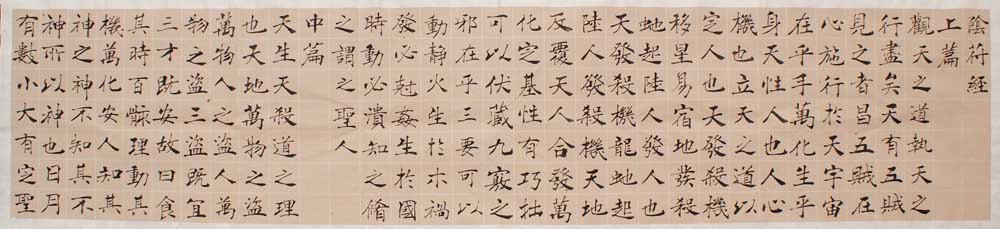 陰符經
上篇
觀天之道執天之
行盡矣天有五賊
見之者昌五賊在
心施行於天宇宙
在乎手萬化生乎
身天性人也人心
機也立天之道以
定人也天發殺機
移星易宿地發殺
虵起陸人發人也
天發殺機龍虵起
陸人發殺機天地
反覆天人合發萬
化定基性有巧拙
可以伏藏九竅之
邪在乎三要可以
動靜火生於木禍
發必尅姦生於國
時動必潰知之脩
之謂之聖人
中篇
天生天殺道之理
也天地萬物之盜
萬物人之盜人萬
物之盜三盜既宜
三才既安故曰食
其時百骸理動其
機萬化安人知其
神之神不知其不
神所以神也日月
有數小大有定聖